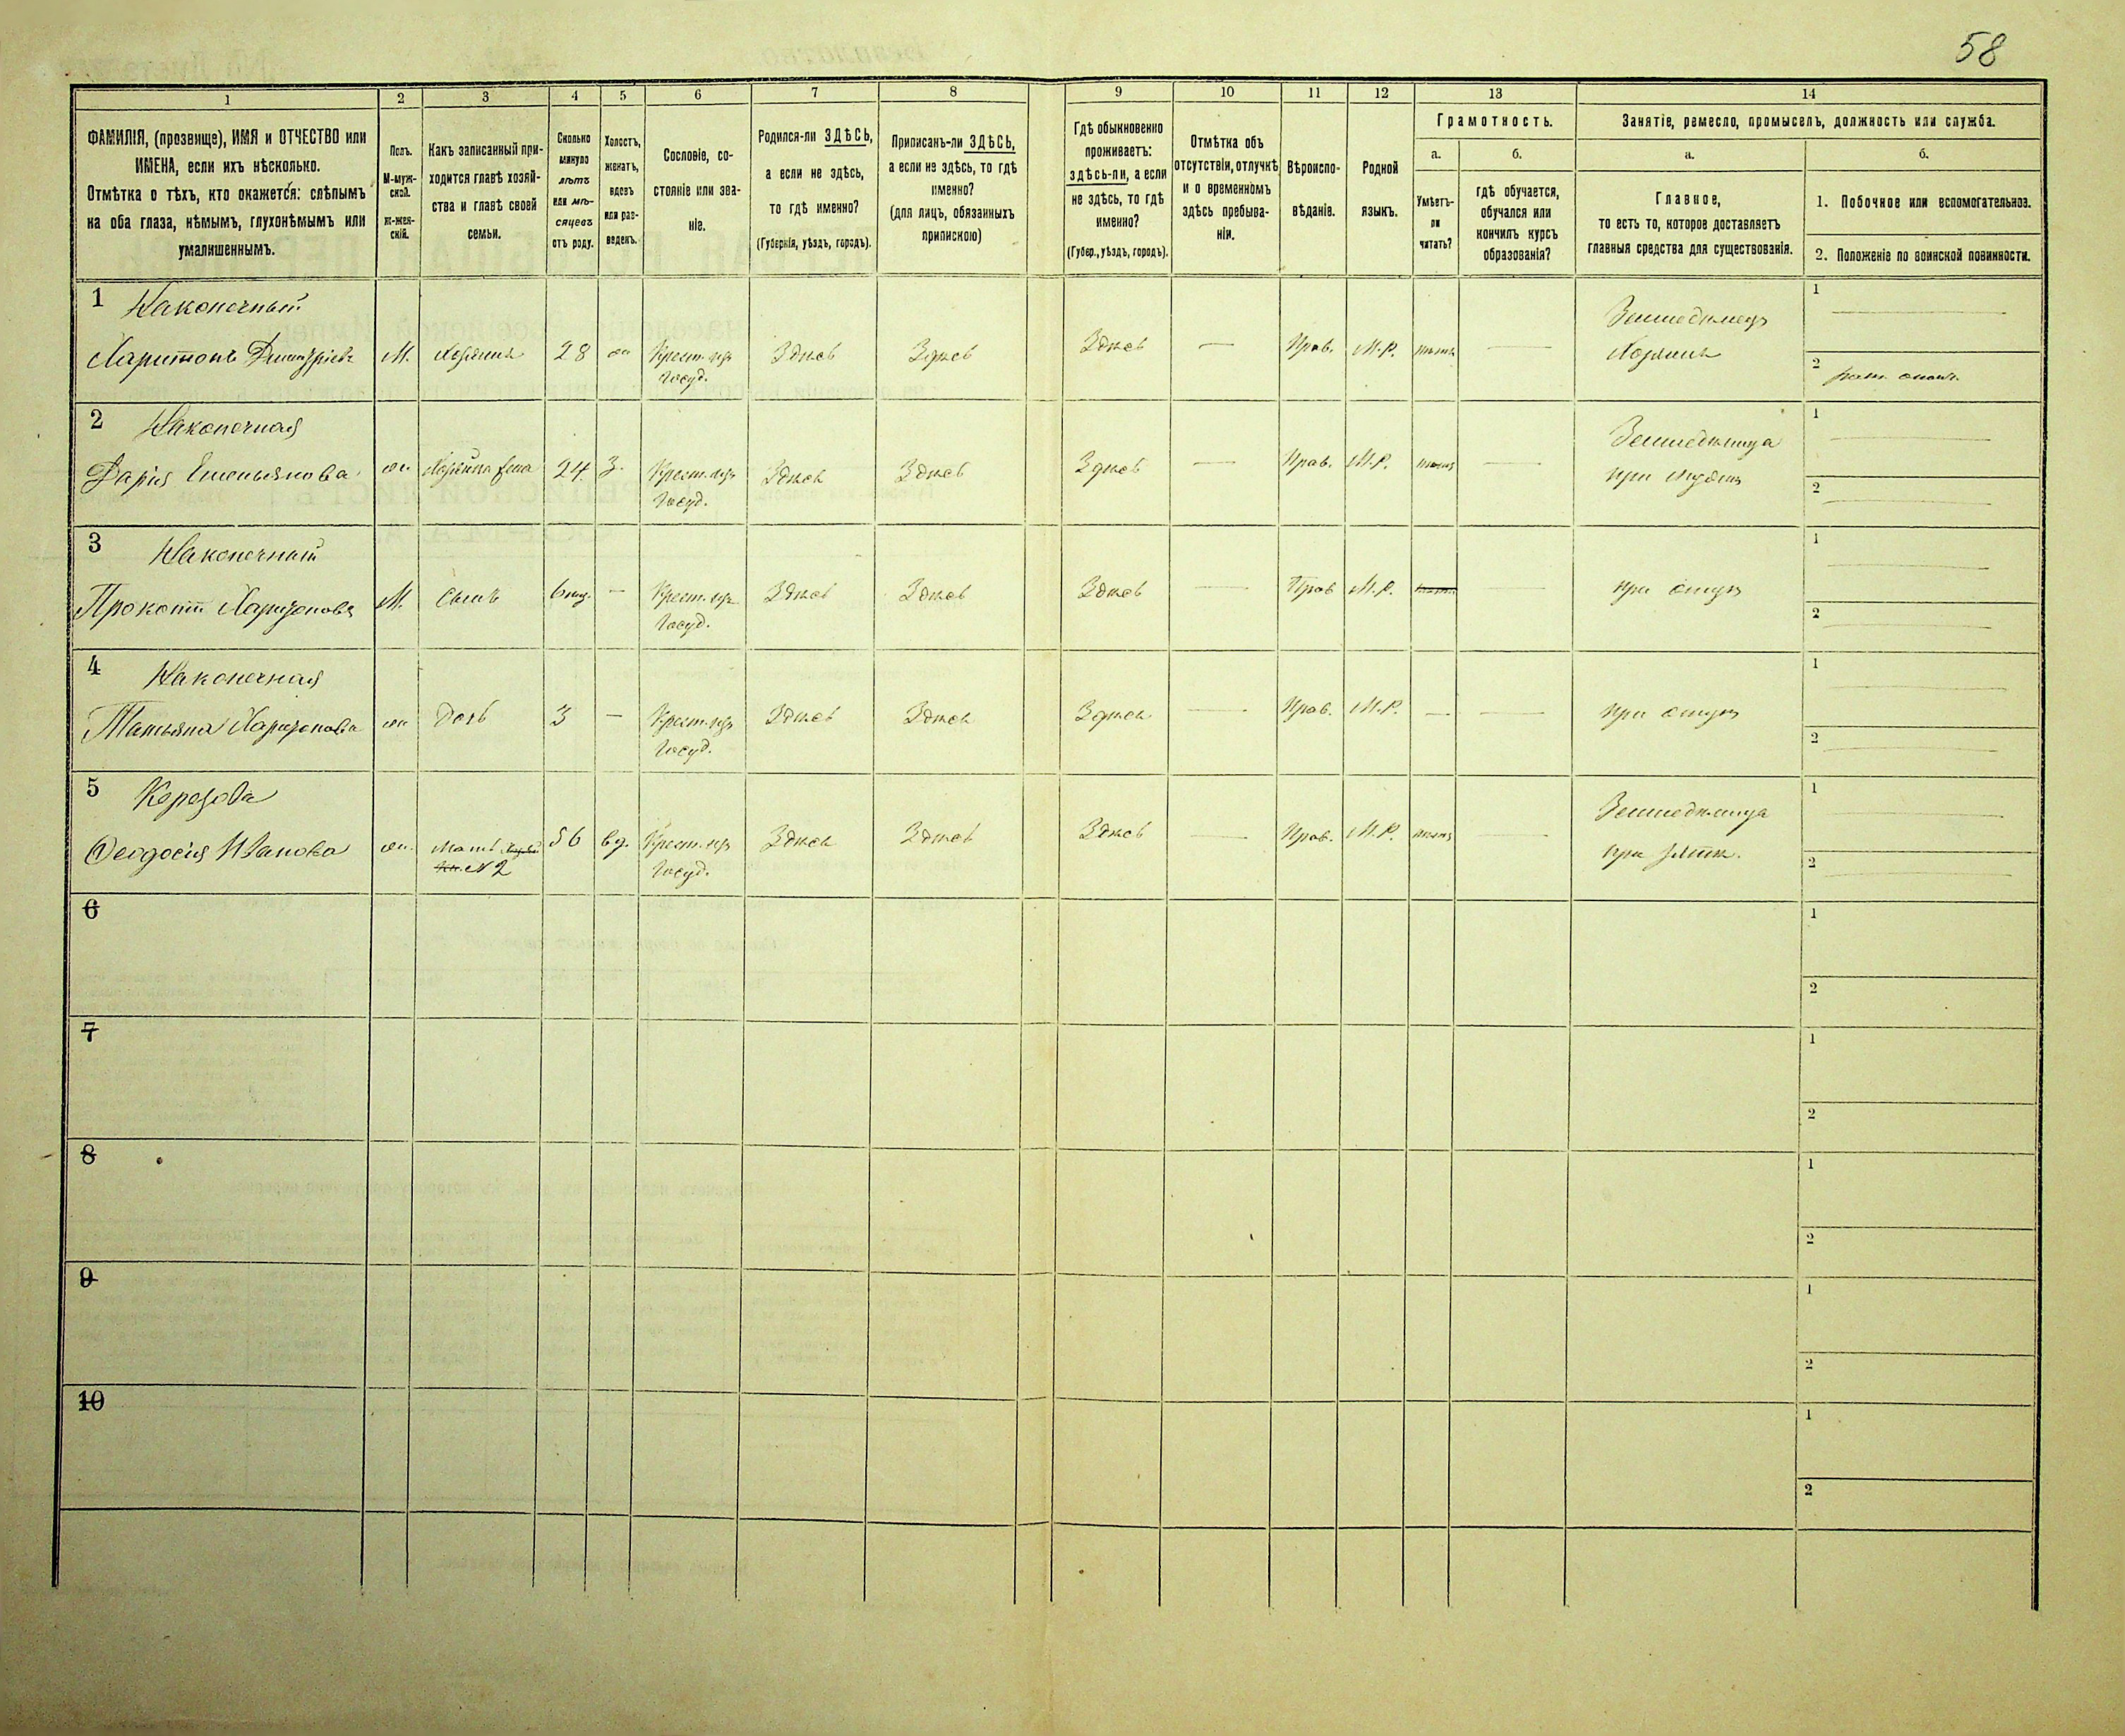 58
1 2 3 4 5 6 7 8 9 10 11 12 13 14
ФАМИЛІЯ, (прозвище), ИМЯ и ОТЧЕСТВО или
ИМЕНА, если ихъ нѣсколько.
Отмѣтка о тѣхъ, кто окажется: слѣпымъ
на оба глаза, нѣмымъ, глухонѣмымъ или
умалишеннымъ.
Полъ.
М-муж-
ской.
Ж-жен-
скій.
Какъ записанный при-
ходится главѣ хозяй-
ства и главѣ своей
семьи.
Сколько
минуло
лѣтъ
или мѣ-
сяцевъ
отъ роду.
Холостъ,
женатъ,
вдовъ
или раз-
веденъ.
Сословіе, со-
стояніе или зва-
ніе.
Родился-ли ЗДѢСЬ,
а если не здѣсь,
то гдѣ именно?
(Губернія, уѣздъ, городъ).
Приписанъ-ли ЗДѢСЬ,
а если не здѣсь, то гдѣ
именно?
(для лицъ, обязанныхъ
припискою)
Гдѣ обыкновенно
проживаетъ:
здѣсь-ли, а если
не здѣсь, то гдѣ
именно?
(Губер., уѣздъ, городъ).
Отмѣтка объ
отсутствіи, отлучкѣ
и о временномъ
здѣсь пребыва-
ніи.
Вѣроиспо-
вѣданіе.
Родной
языкъ.
Грамотность.
а.
Умѣетъ-
ли
читать?
б.
гдѣ обучается,
обучался или
кончилъ курсъ
образованія?
Занятіе, ремесло, промыселъ, должность или служба.
а.
Главное,
то есть то, которое доставляетъ
главныя средства для существованія.
б.
1. Побочное или вспомогательное.
2. Положеніе по воинской повинности.
1 Наконечный
Харитонъ Дмитріевъ М. Хозяинъ 28 ж Крест. изъ Здѣсь Здѣсь Здѣсь — Прав. М.Р. нѣтъ — Земледѣлецъ
Госуд. Хозяинъ
1 —
2 рат. ополч.
2 Наконечная
Дарія Емельянова ж Хозяина жена 24 З. Крест. изъ Здѣсь Здѣсь Здѣсь — Прав. М.Р. нѣтъ — Земледѣлица
Госуд. при мужѣ
1 —
2 —
3 Наконечный
Прокопій Харитоновъ М. Сынъ 6 мц. — Крест. изъ Здѣсь Здѣсь Здѣсь — Прав М.Р. нѣтъ — при отцѣ
Госуд.
1 —
2 —
4 Наконечная
Татьяна Харитонова ж Дочь 3 — Крест. изъ Здѣсь Здѣсь Здѣсь — Прав. М.Р. — — при отцѣ
Госуд.
1 —
2 —
5
Феодосія Иванова ж. мать 56 вд. Крест. изъ Здѣсь Здѣсь Здѣсь — Прав. М.Р. нѣтъ — Земледѣлица
№2 Госуд. при зятѣ.
1 —
2 —
6
1
2
7
1
2
8
1
2
9
1
2
10
1
2